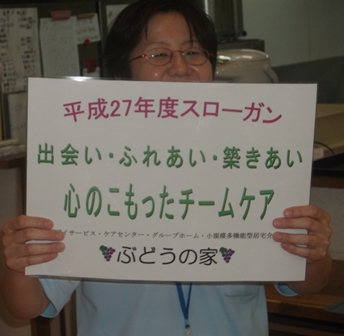 平成27年度スローガン
出会い・ふれあい・築きあい
心のこもったチームケア
イサービス・ケアセンター・グループホーム・小規模多機能型居宅介
ぶどうの家